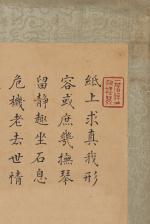 紙上求真我形
容或庶幾撫琴
留静趣坐石息
危機老去世情